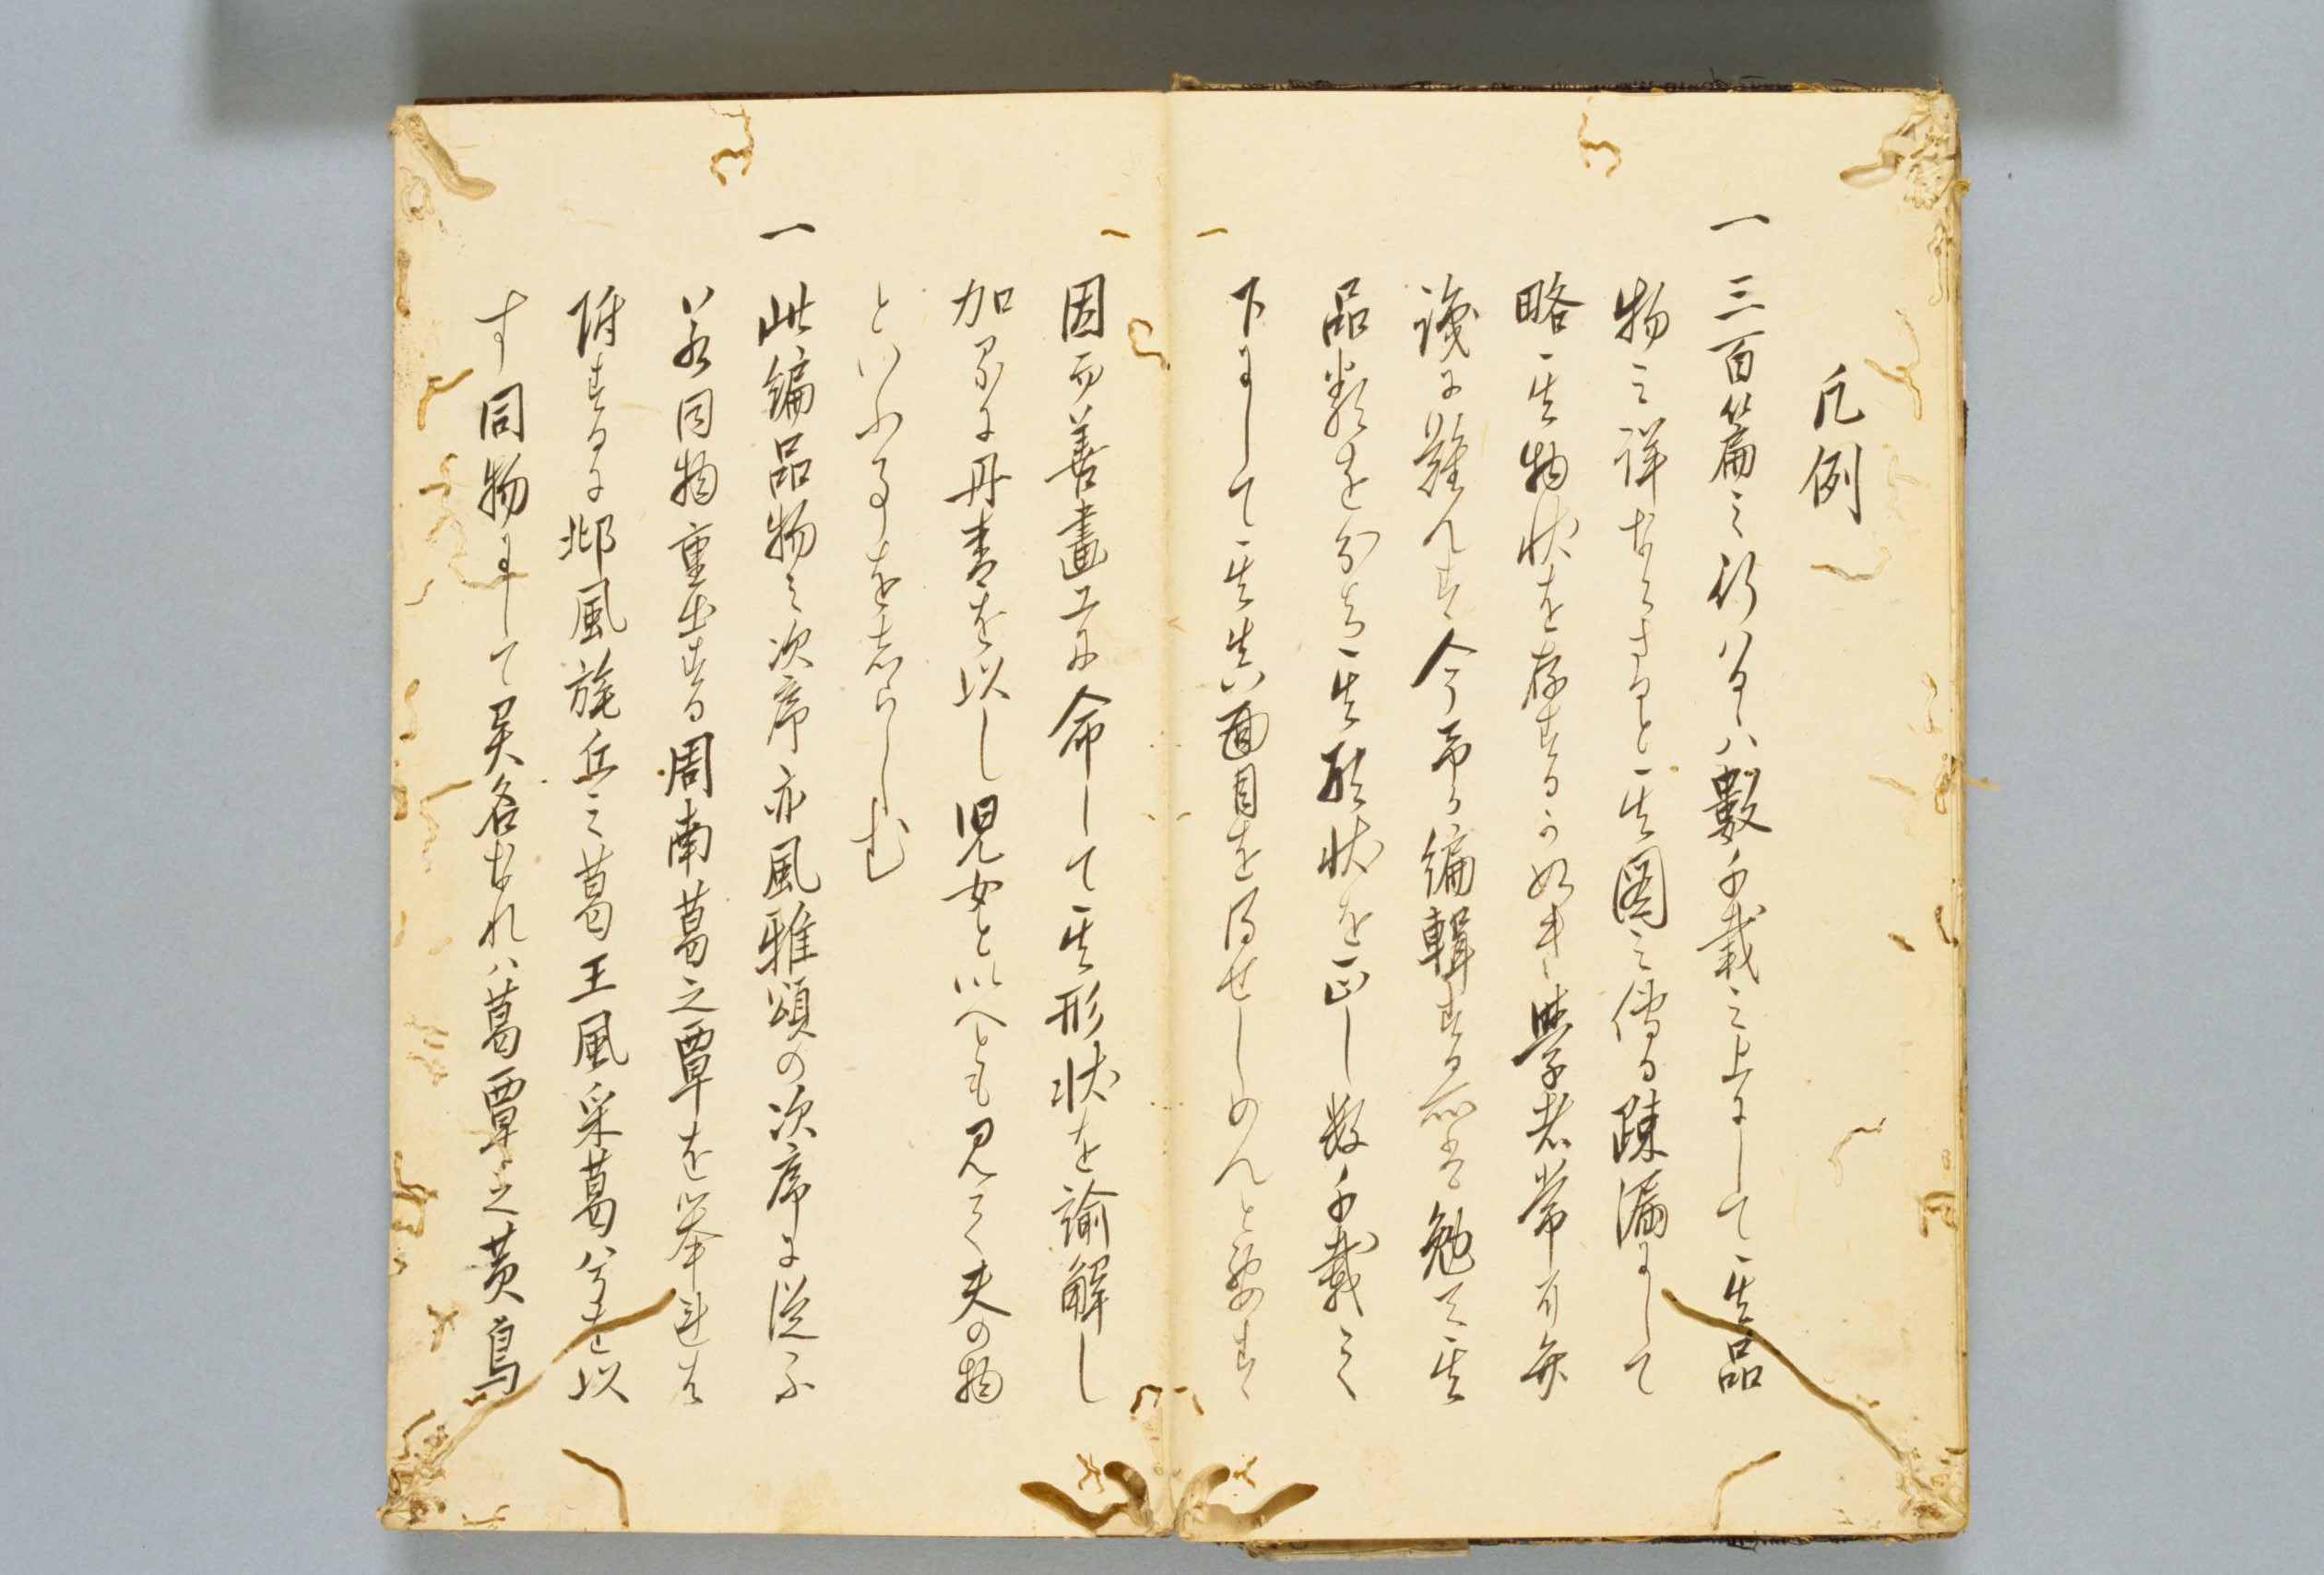 凡例
一三百篇之行ハるゝハ數千載之上にして其品
物之詳ならさると其圖之傳る踈漏にして
略其物状を存するか如き學者常ニ弁
識に難んす今専ら編輯する所者勉て其
品類を分ち其形状を正し数千載之
下にして其生ハ面目を得せしめんと要す
因而善畫工に命して其形状を諭解し
加るに丹青を以し児女といへとも見て夫の物
といふ事を志らしむ
一此編品物之次序亦風雅頌の次序に従ふ
若同物重出する周南葛之覃を挙れは
附するに邶風旄丘之葛王風采葛ハ兮を以
す同物にして異名なれハ葛覃之黄鳥